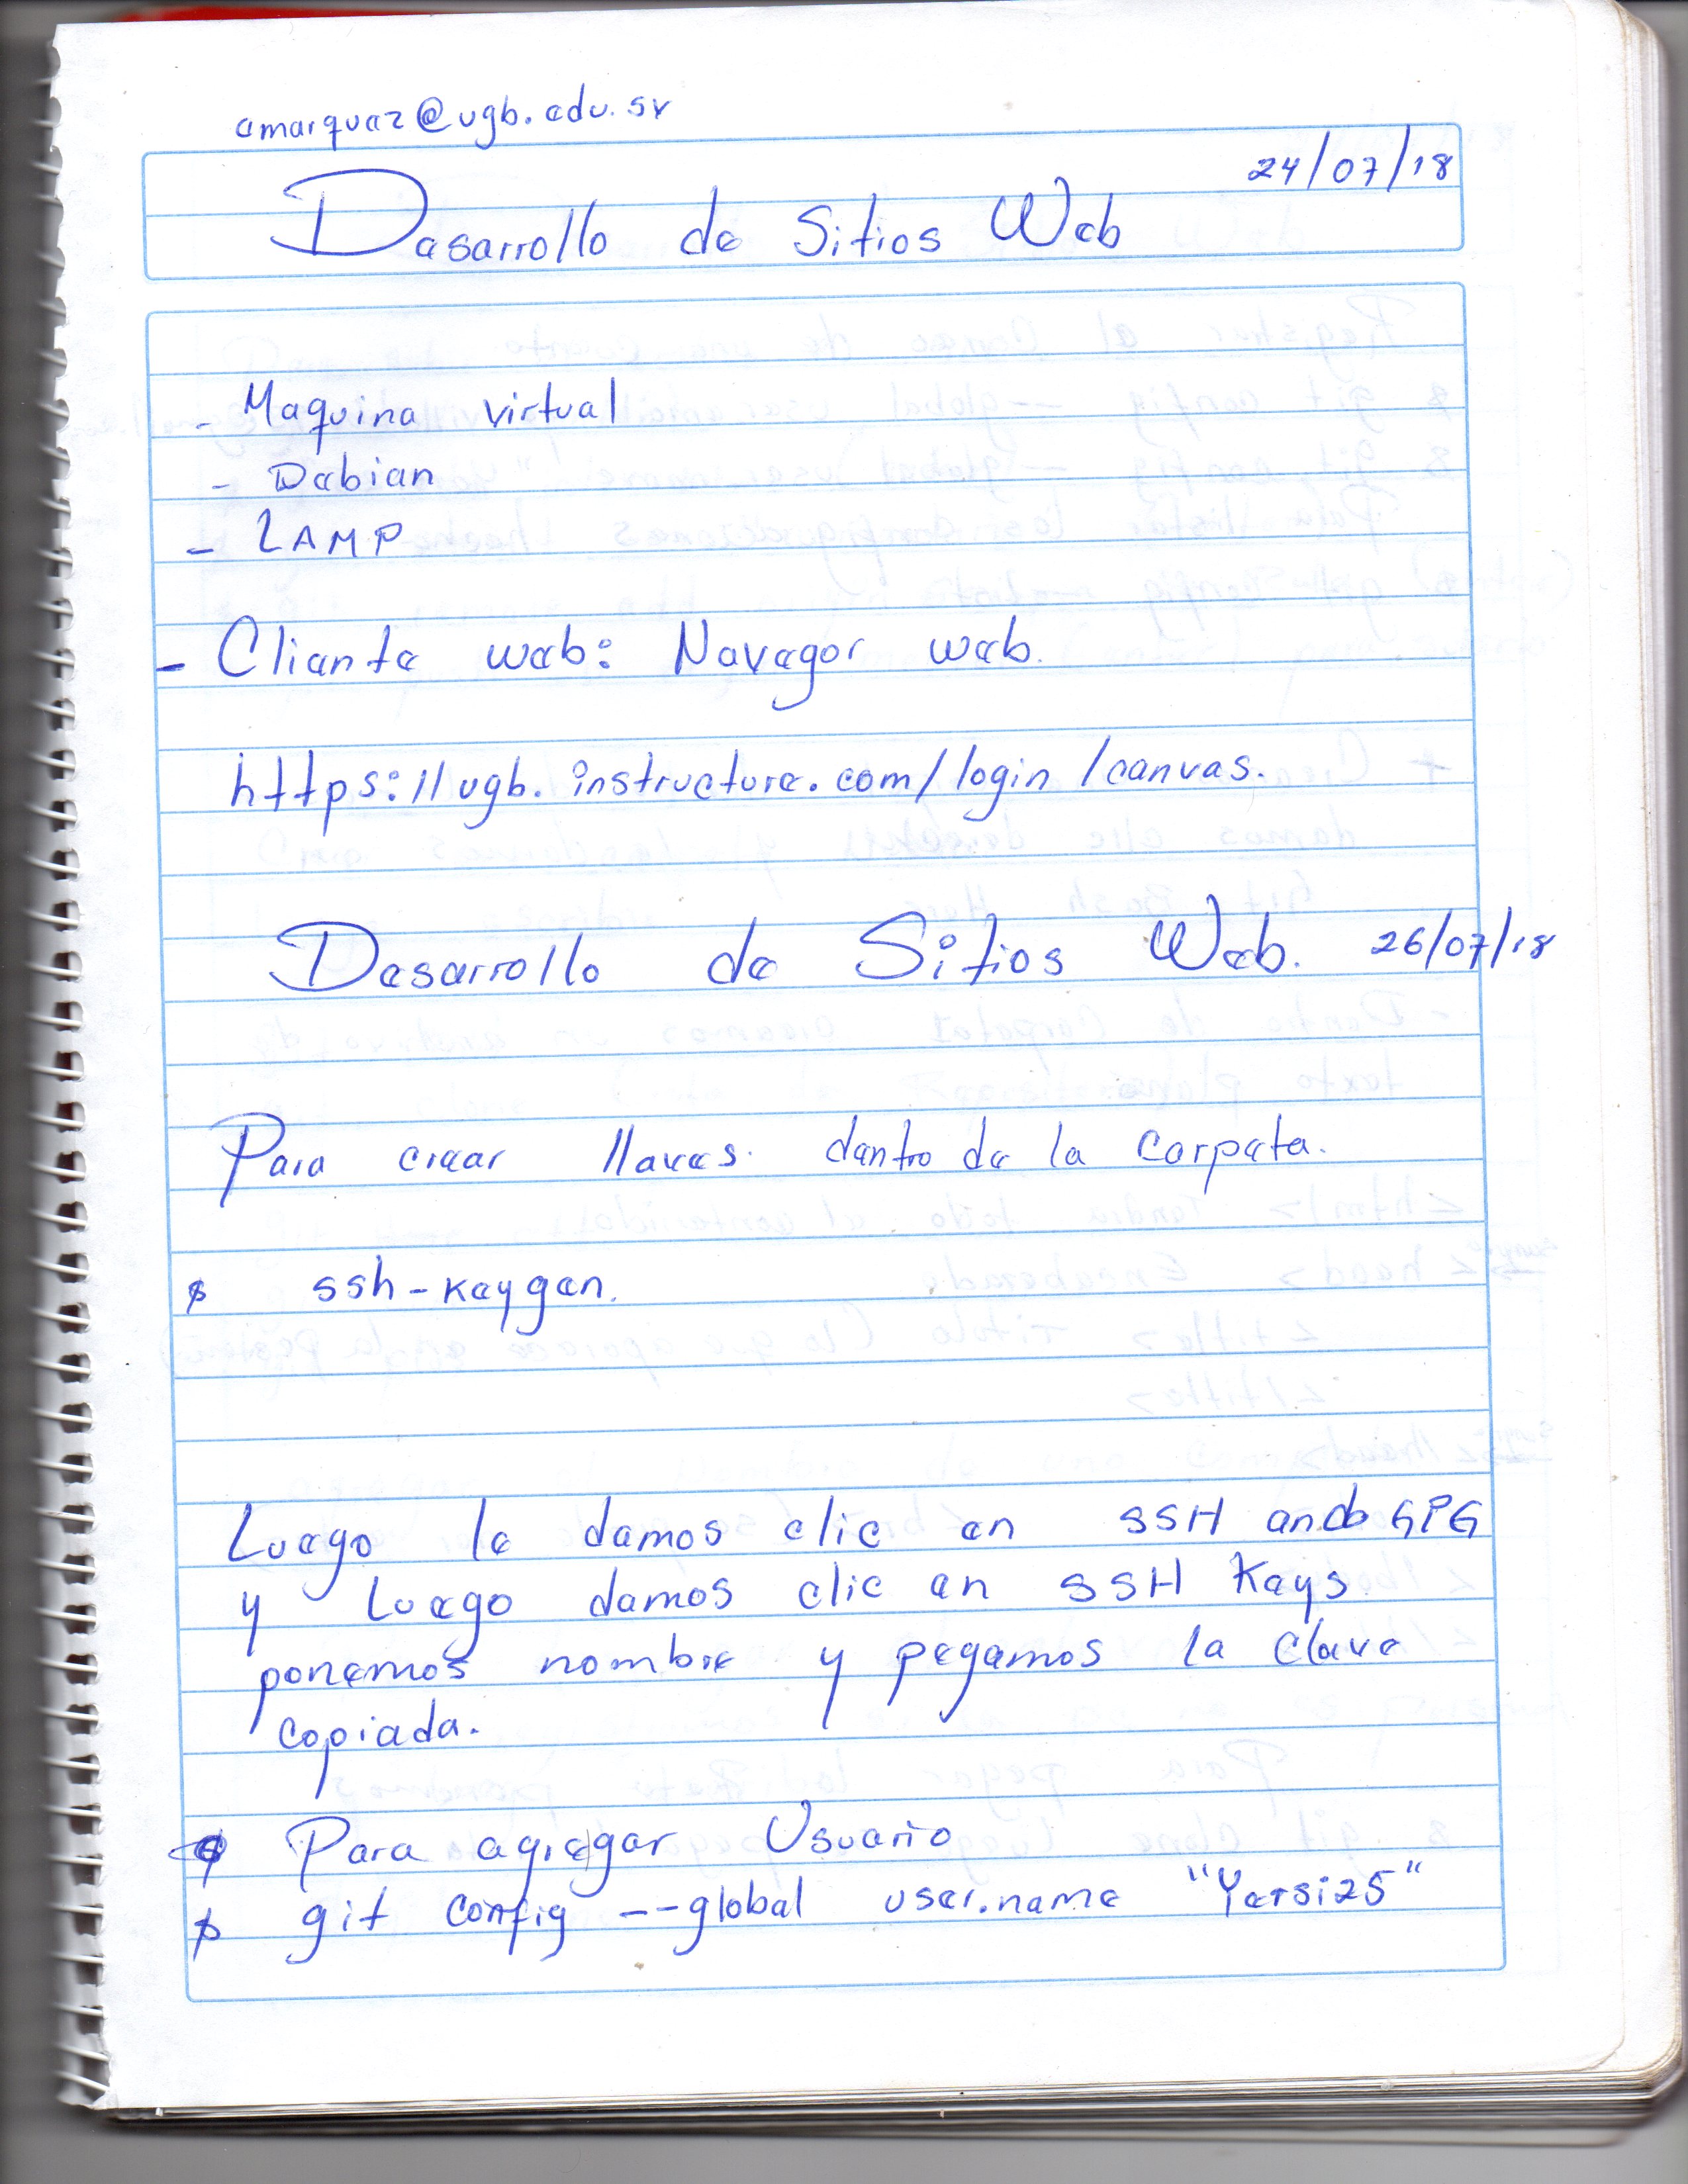 amarquez@ugb.edu.sv
24/07/18
Desarrollo de Sitios Web
- Maquina virtual
- Debian
- LAMP
- Cliente web: Navegor web.
https://ugb.instructure.com/login/canvas.
Desarrollo de Sitios Web. 26/07/18
Para crear llaves. dentro de la Carpeta.
$ ssh-keygen.
Luego le damos clic en SSH and GPG
y luego damos clic en SSH Keys.
ponemos nombre y pegamos la clave
copiada.
$ Para agregar Usuario
$ git config --global user.name "Yersi25"